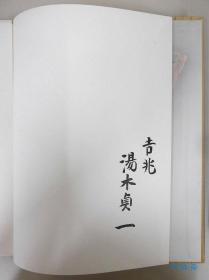 吉兆
湯木貞一